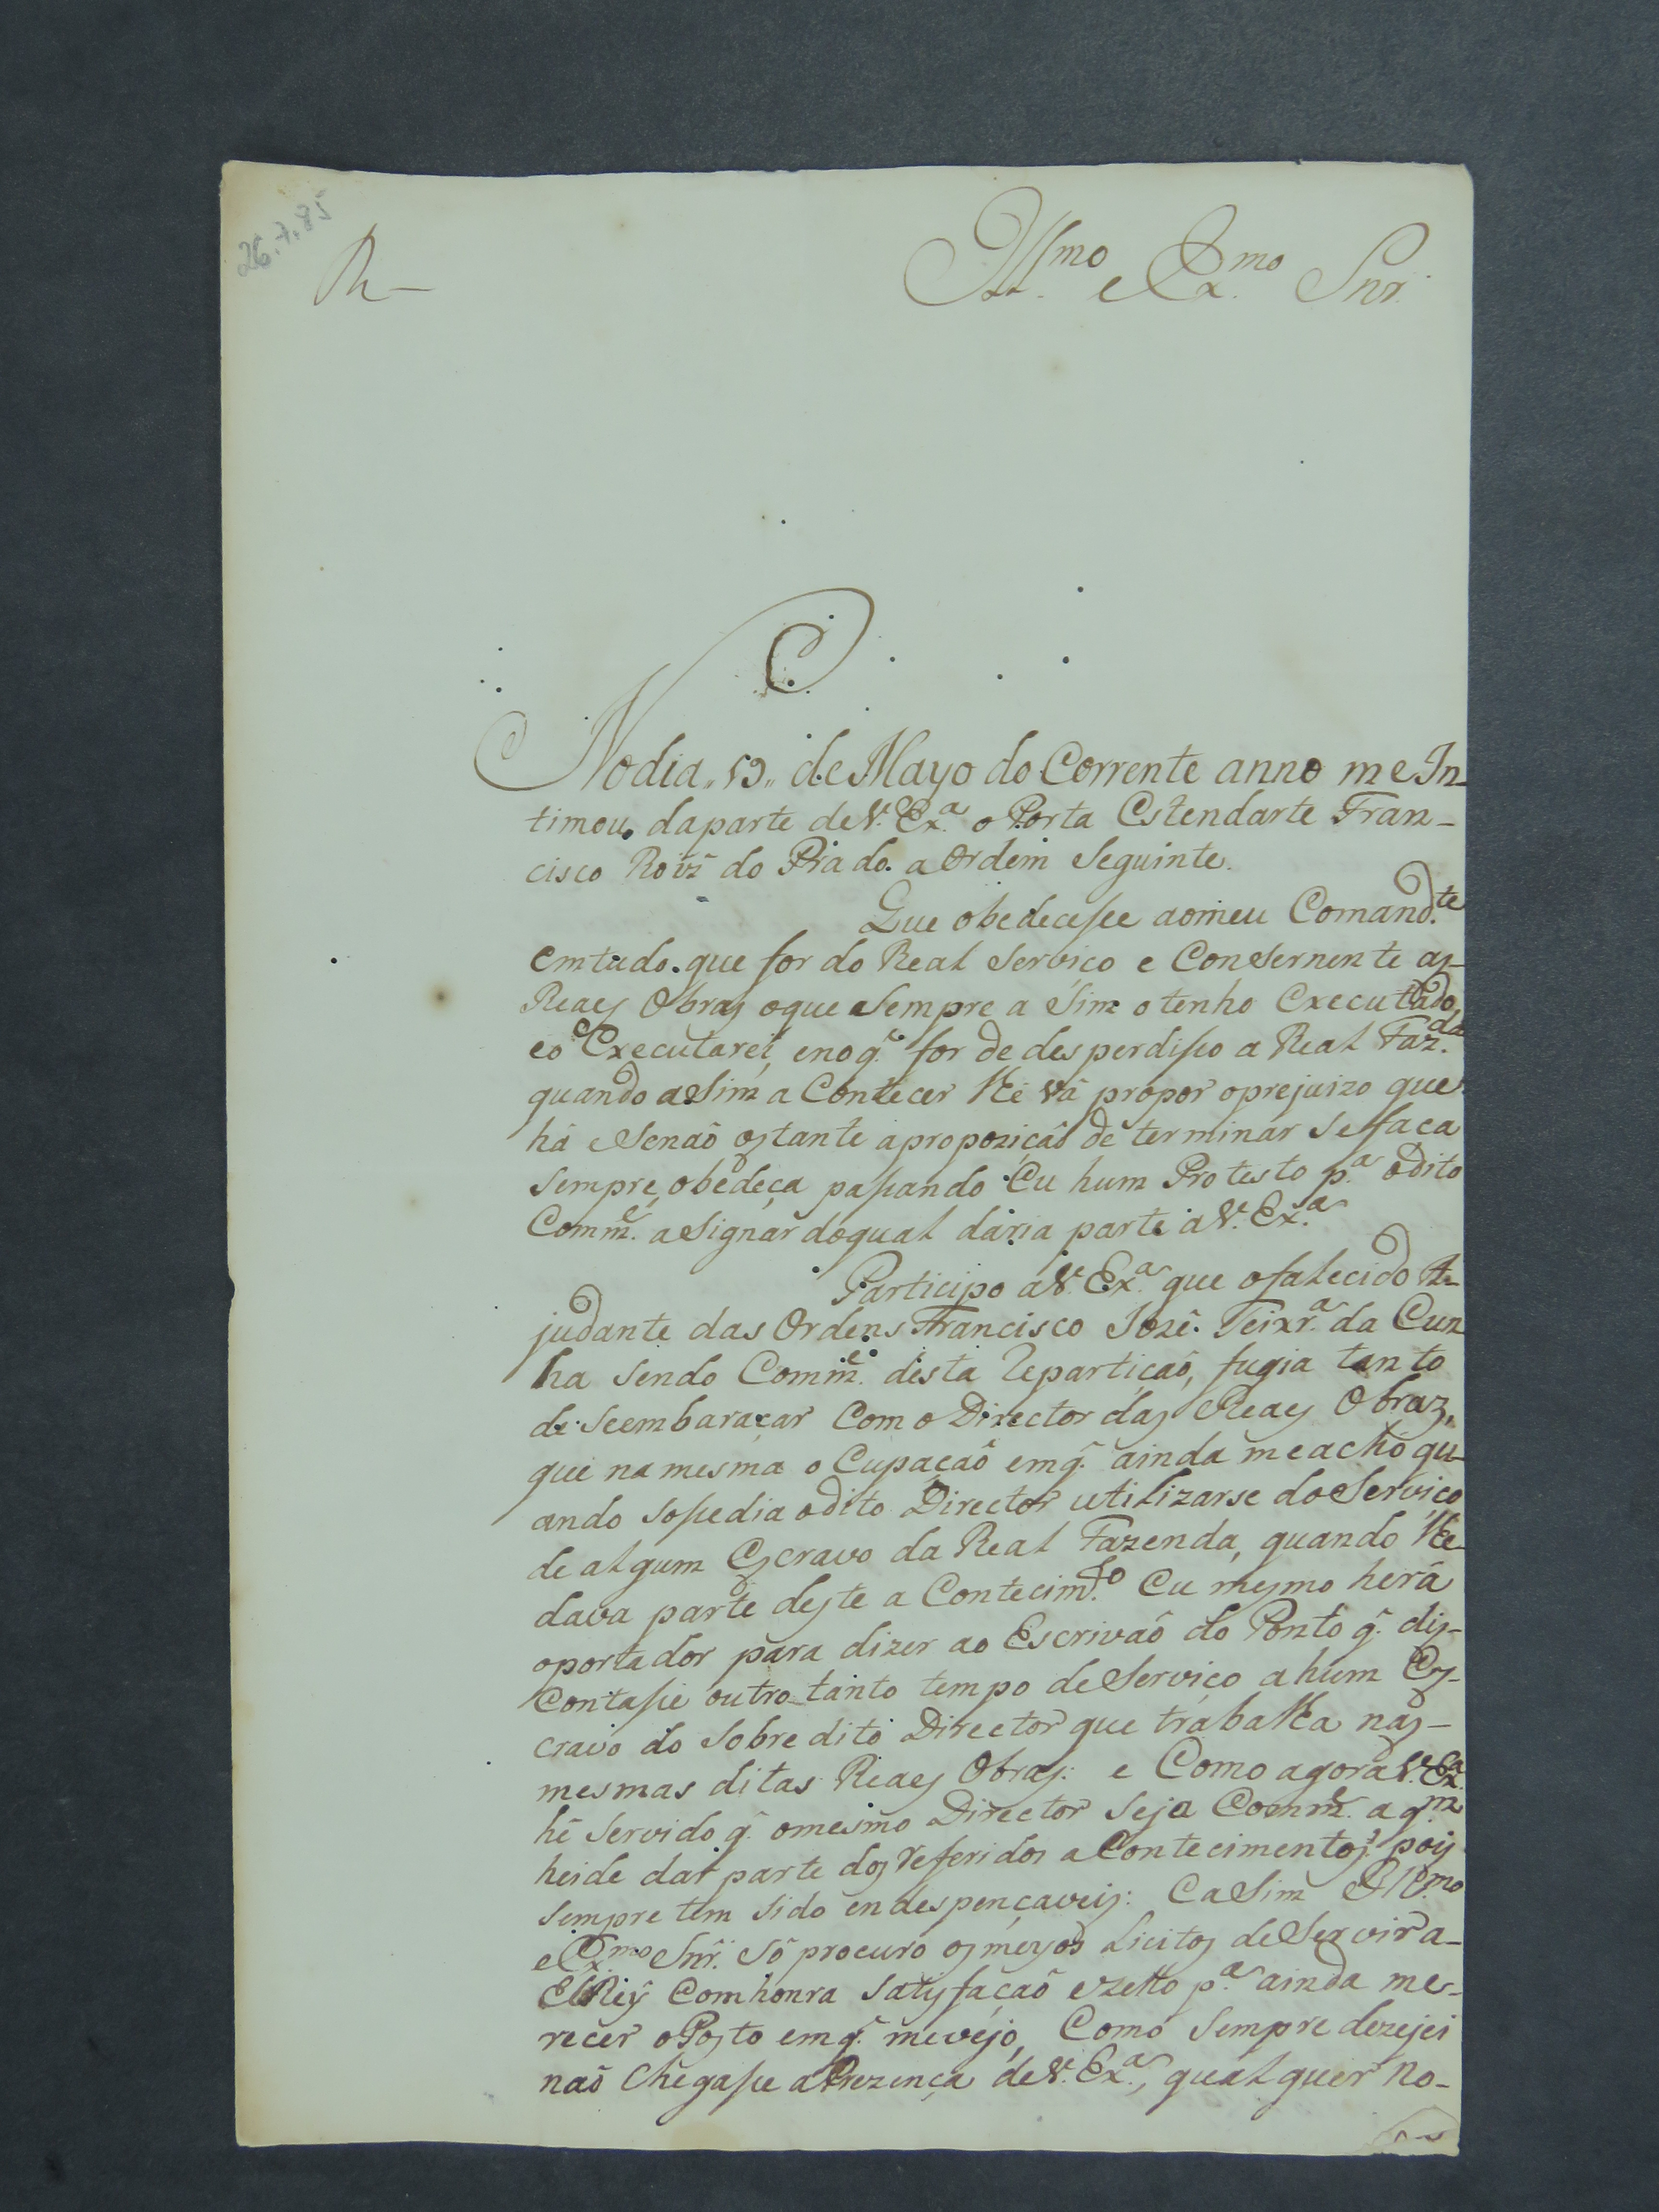 26.7.85
R-
Illmo e Exmo Snr.
No dia,, 19,, de Mayo do Corrente anno me In-
timou da parte de V. Exa. o Porta Estendarte Fran-
cisco Roiz do Prado a Ordem Seguinte.
Que obedecesse aomeu Comand.te
emtudo que for do Real Serviço e Consernente as
Reaes Obras oque Sempre a Sim o tenho Executado,
eo Executarei, enoq. for de desperdiso a Real Faz.da
quando aSim a Contecer lhe vá propor oprejuizo que
há eSenaõ ostante apropoziçaõ de terminar Se faca
Sempre, obedeça passando Eu hum Protesto p.a odito
Comm.e aSignar doqual daria parte a V. Ex.a
Participo a V. Ex.a que ofalecido A-
judante das Ordens Francisco Jozé Teixr.a da Cun
ha Sendo Comm.e desta Repartiçaõ, fugia tanto
de Seembaraçar Com o Director das Reaes Obraz,
que na mesma o Cupaçaõ emq. ainda meacho qu-
ando Sosedia odito Director utilizarse do Serviço
de algum Escravo da Real Fazenda, quando lhe
dava parte deste a Contecim.to Eu mesmo herá
oportador para dizer ao Escrivaõ do Ponto q. dis-
Contasse outro tanto tempo de Serviço ahum Es-
cravo do Sobre dito Director que trabalha nas-
mesmas ditas Reaes Obras: e Como agora V. Ex.a
hé Servido q. omesmo Director Seja Comm.e a q.m
heide dar parte dos referidos aContecimentos, pois
Sempre tem Sido endespençaveis: EaSim Ill.mo
e Ex.mo Snr. Só procuro os meyos Licitos de Servir a-
ElRey Comhonra Satisfaçaõ ezello p.a ainda me-
recer o Posto emq. mevejo, Como Sempre dezejei
naõ Chegasse a Prezença de V. Ex.a, qualquer No-